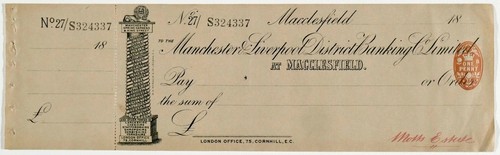 No 27/S324337
No 27/ S324337 Macclesfield 18
18
TO THE Manchester & Liverpool District Banking Co. Limited
AT MACCLESFIELD.
Pay or Order
the sum of
£
£
LONDON OFFICE, 75, CORNHILL, E.C.
ONE PENNY